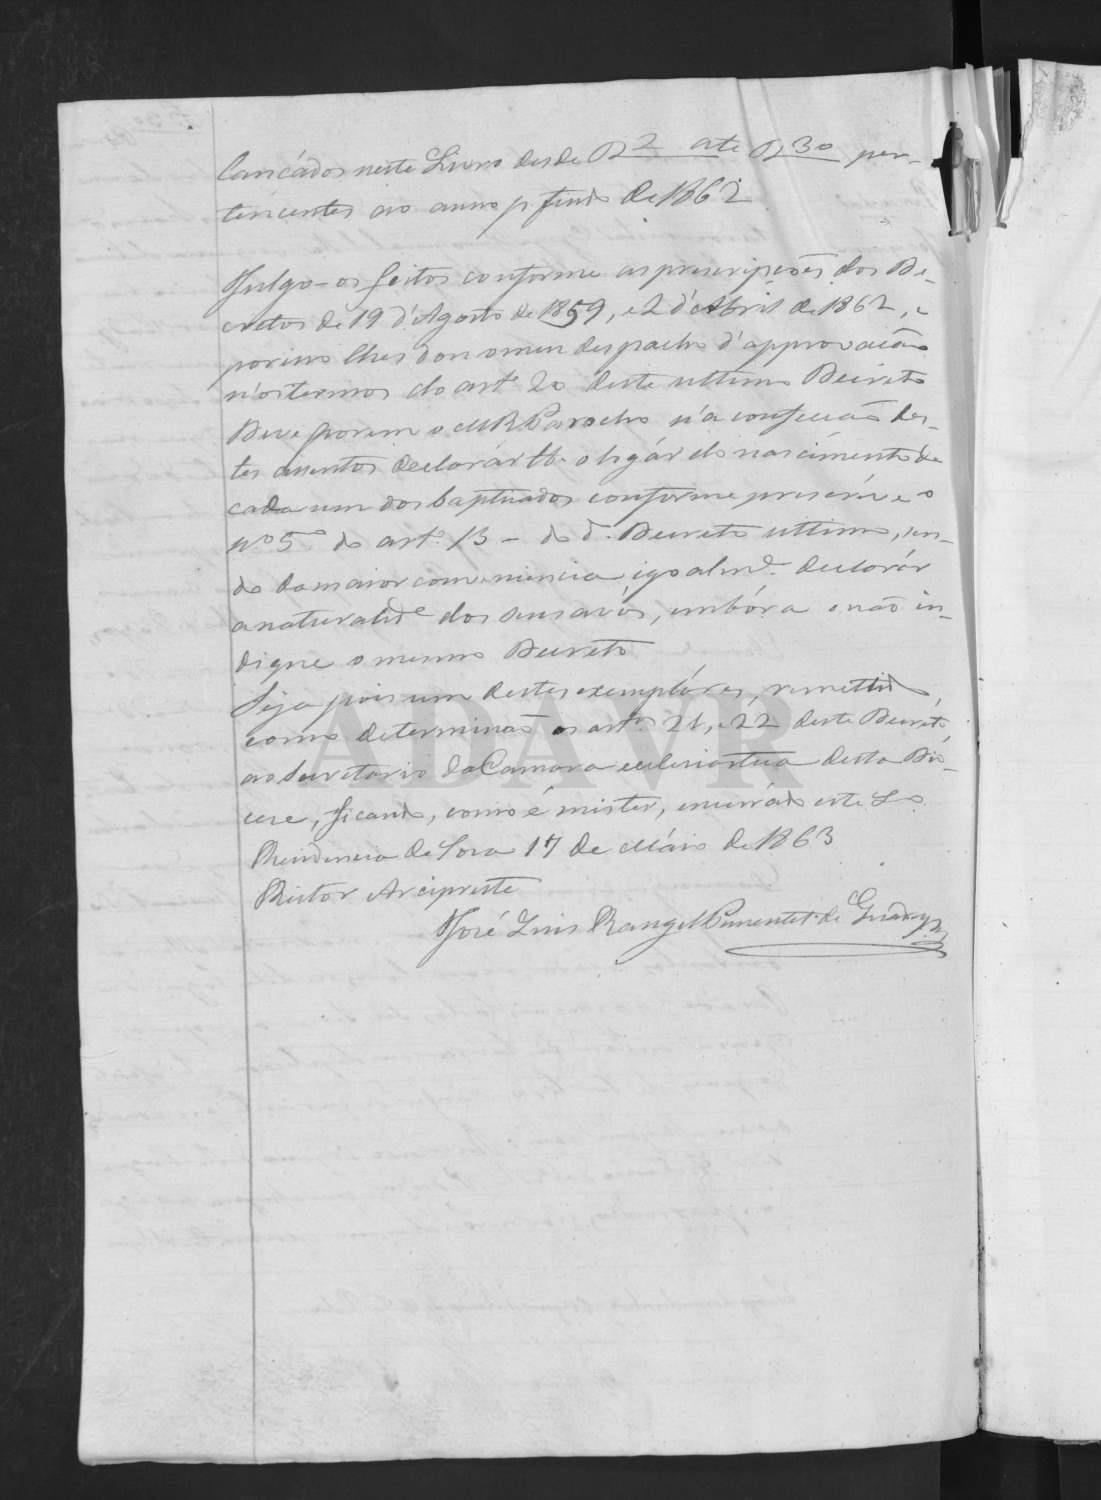 lancádos neste Livro desde R 2 ate R 30 per-
tencentes ao anno p. findo de 1862
Julgo-os feitos conforme as prescripções dos De-
cretos de 19 d'Agosto de 1859, e 2 d'Abril de 1862, e
por isso lhes dou o meu despacho d'approvacão
n'os termos do art.º 20 deste ultimo Decreto
Deve porem o M R Parocho n'a confeccão des-
tes assentos declarár o logár do nascimento de
cada um dos baptisados conforme prescréve o
nº 5º do art.º 13 - do d.º Decreto ultimo, sen-
do da maior conveniencia igoalm.e declarár
a naturalid.e dos seus avós, embóra o não in-
digne o mesmo Decreto
Seja pois um destes exempláres, remettido,
como determinão os art.os 21, e 22 deste Decreto,
ao Secretario da Camara ecclesiastica desta Dio-
cese, ficando, como é mister, encerrádo este L.o
Residencia de Soza 17 de Máio de 1863
Reitor Arcipreste
José Luis Rangel Pimentel de
ADAVR